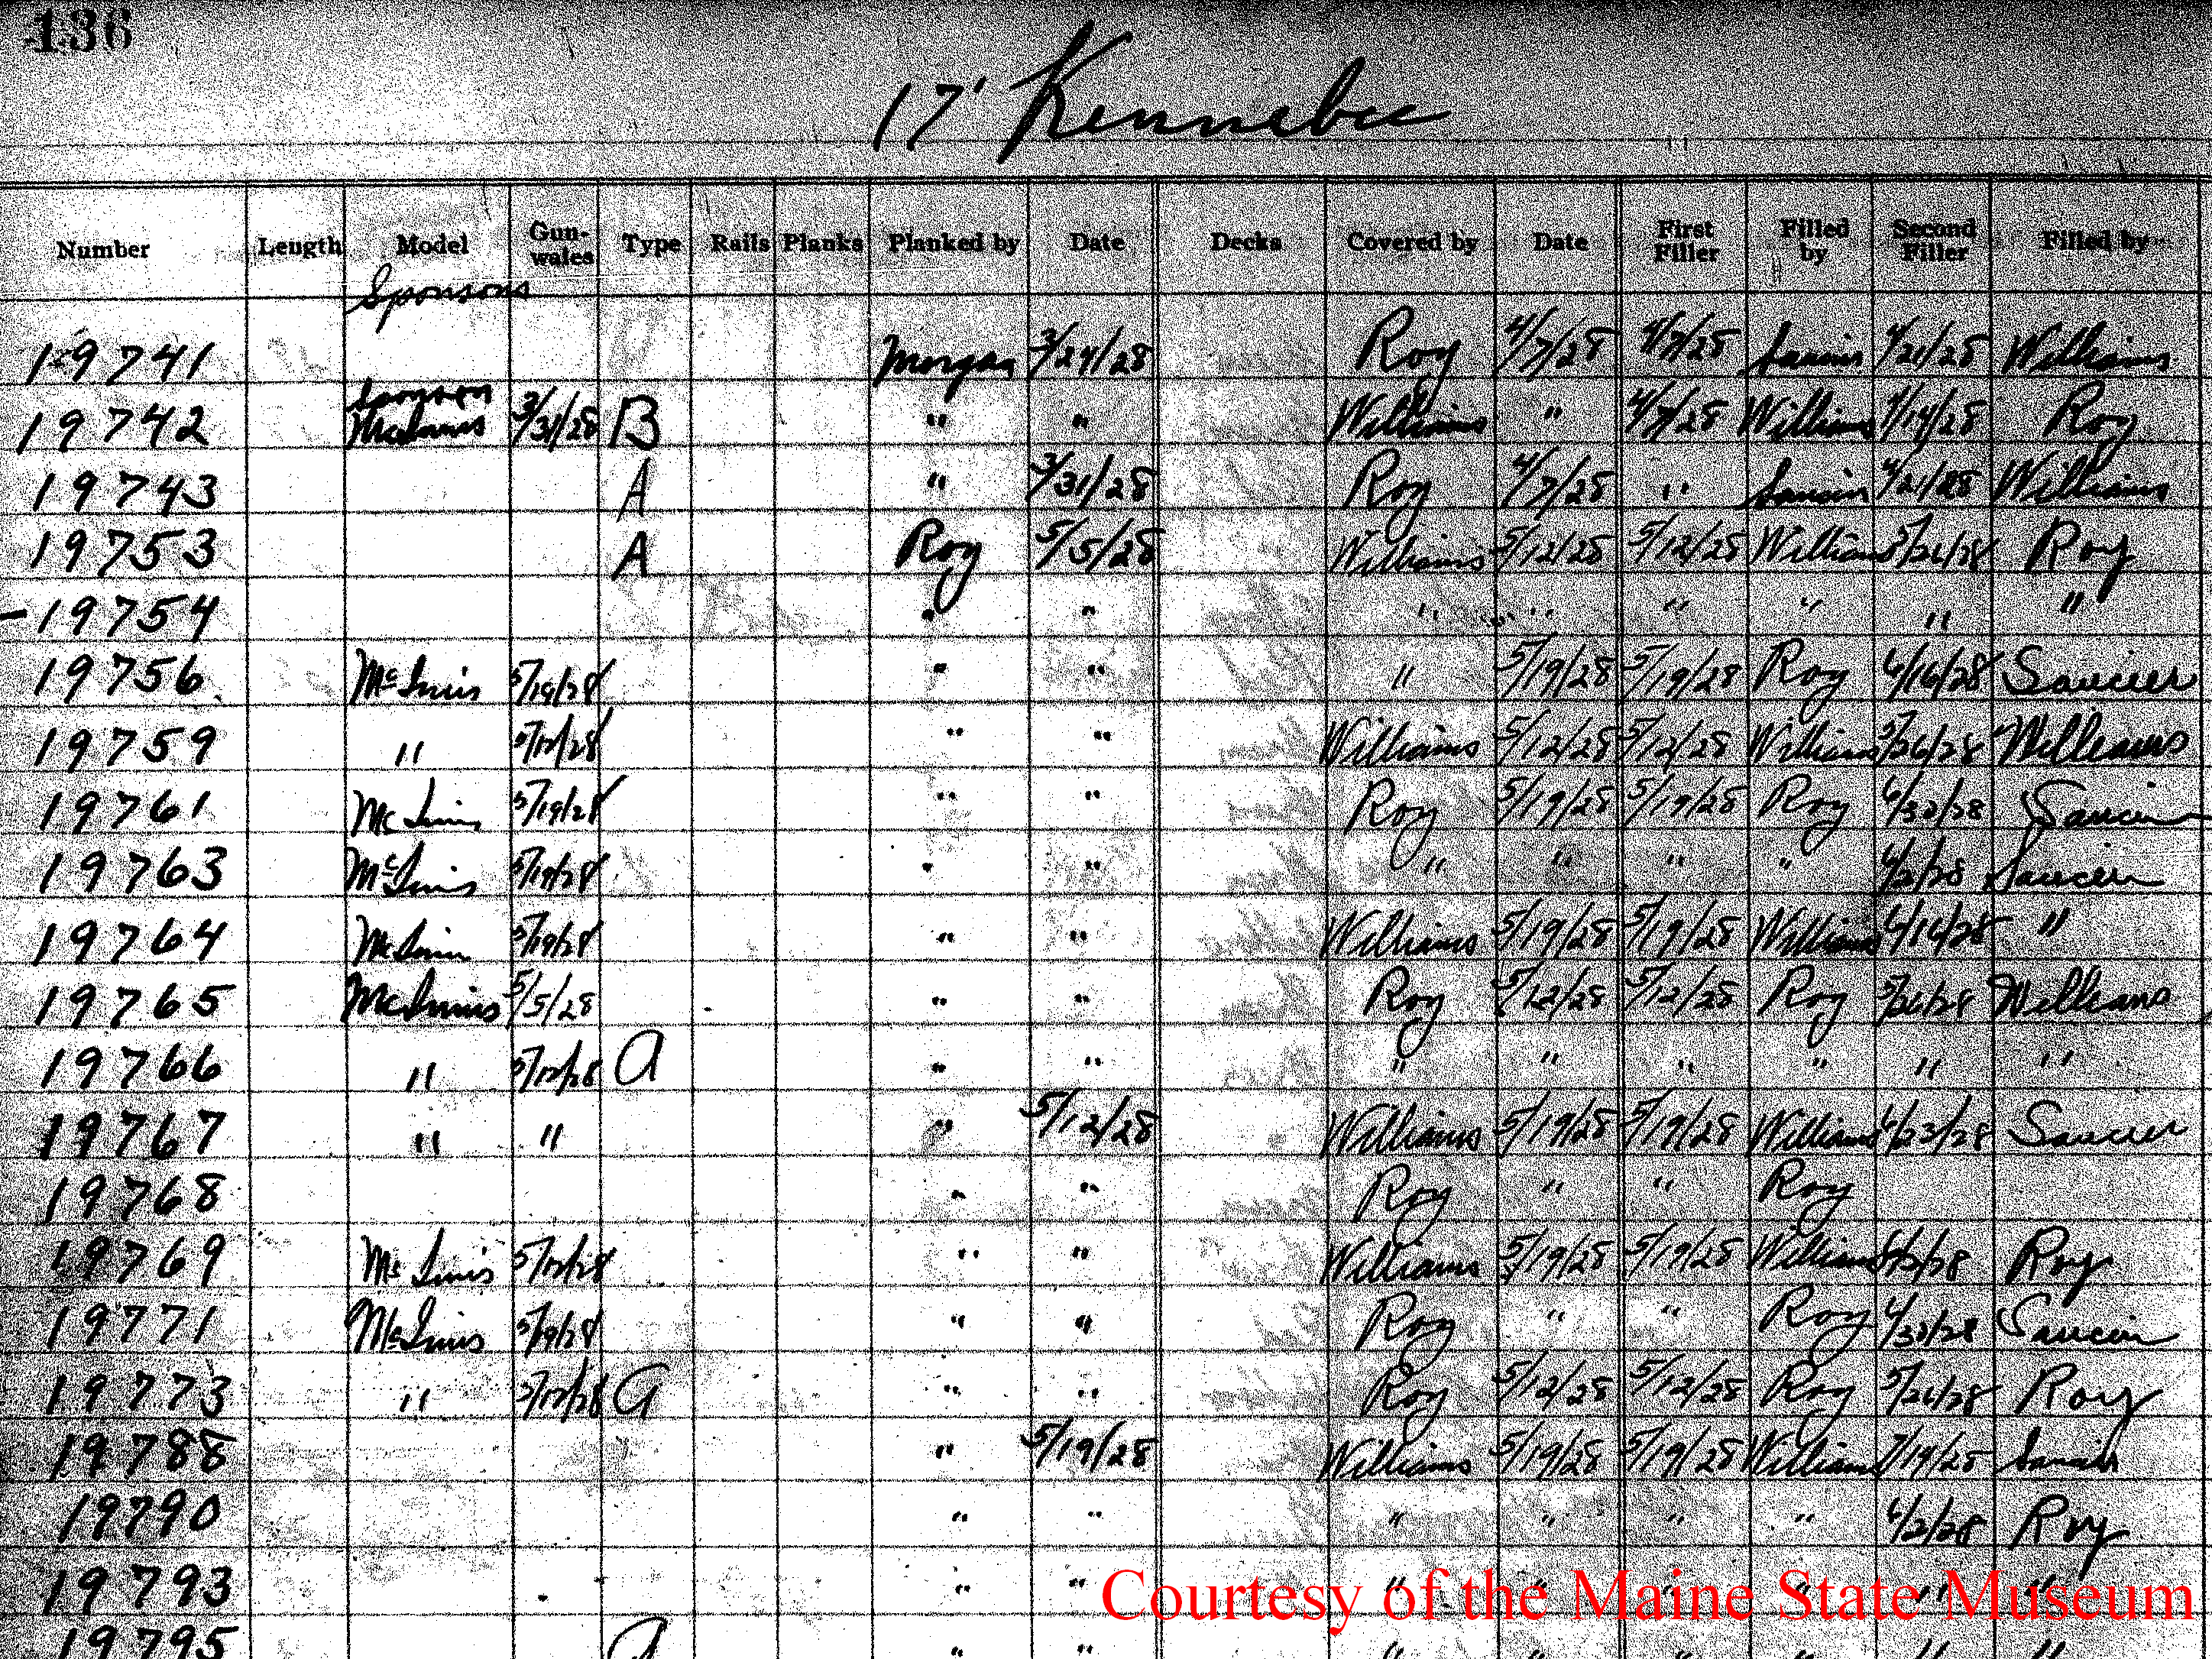 136
17' Kennebec
Number Length Model Gun-wales Type Rails Planks Planked by Date Decks Covered by Date First Filler Filled by Second Filler Filled by
Sponsons
19741 Morgan 3/24/28 Roy 4/7/28 4/7/28 4/21/28 Williams
19742 3/31/28 B " " Williams " 4/7/28 Williams 4/14/28 Roy
19743 A " 3/31/28 Roy 4/7/28 " 4/21/28 Williams
19753 A Roy 5/5/28 Williams 5/12/28 5/12/28 Williams 5/26/28 Roy
-19754 " " " " " " " "
19756 McInnis 5/19/28 " " " 5/19/28 5/19/28 Roy 6/16/28 Saucier
19759 " 5/12/28 " " Williams 5/12/28 5/12/28 Williams 5/26/28 Williams
19761 McInnis 5/19/28 " " Roy 5/19/28 5/19/28 Roy 6/30/28 Saucier
19763 McInnis 5/19/28 " " " " " " 6/2/28 Saucier
19764 McInnis 5/19/28 " " Williams 5/19/28 5/19/28 Williams 6/16/28 "
19765 McInnis 5/5/28 " " Roy 5/12/28 5/12/28 Roy 5/26/28 Williams
19766 " 5/12/28 A " " " " " " " "
19767 " " " 5/12/28 Williams 5/19/28 5/19/28 Williams 6/23/28 Saucier
19768 " " Roy " " Roy
19769 McInnis 5/12/28 " " Williams 5/19/28 5/19/28 Williams 6/2/28 Roy
19771 McInnis 5/19/28 " " Roy " " Roy 6/30/28 Saucier
19773 " 5/12/28 A " " Roy 5/12/28 5/12/28 Roy 5/26/28 Roy
19788 " 5/19/28 Williams 5/19/28 5/19/28 Williams 7/19/28 Saucier
19790 " " " " " " 6/2/28 Roy
19793 " " " " " " " "
19795 A " " " " " " " "
Courtesy of the Maine State Museum